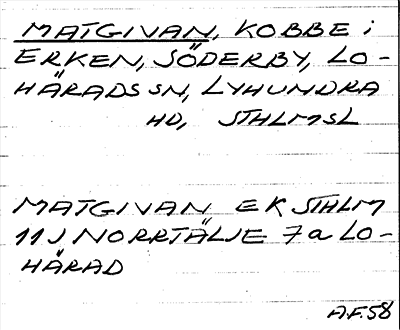 MATGIVAN, KOBBE i
ERKEN, SÖDERBY, LO-
HÄRADS SN, LYHUNDRA
HD, STHLMSL
MATGIVAN EK STHLM
11J NORRTÄLJE 7a LO-
HÄRAD
A.F.58